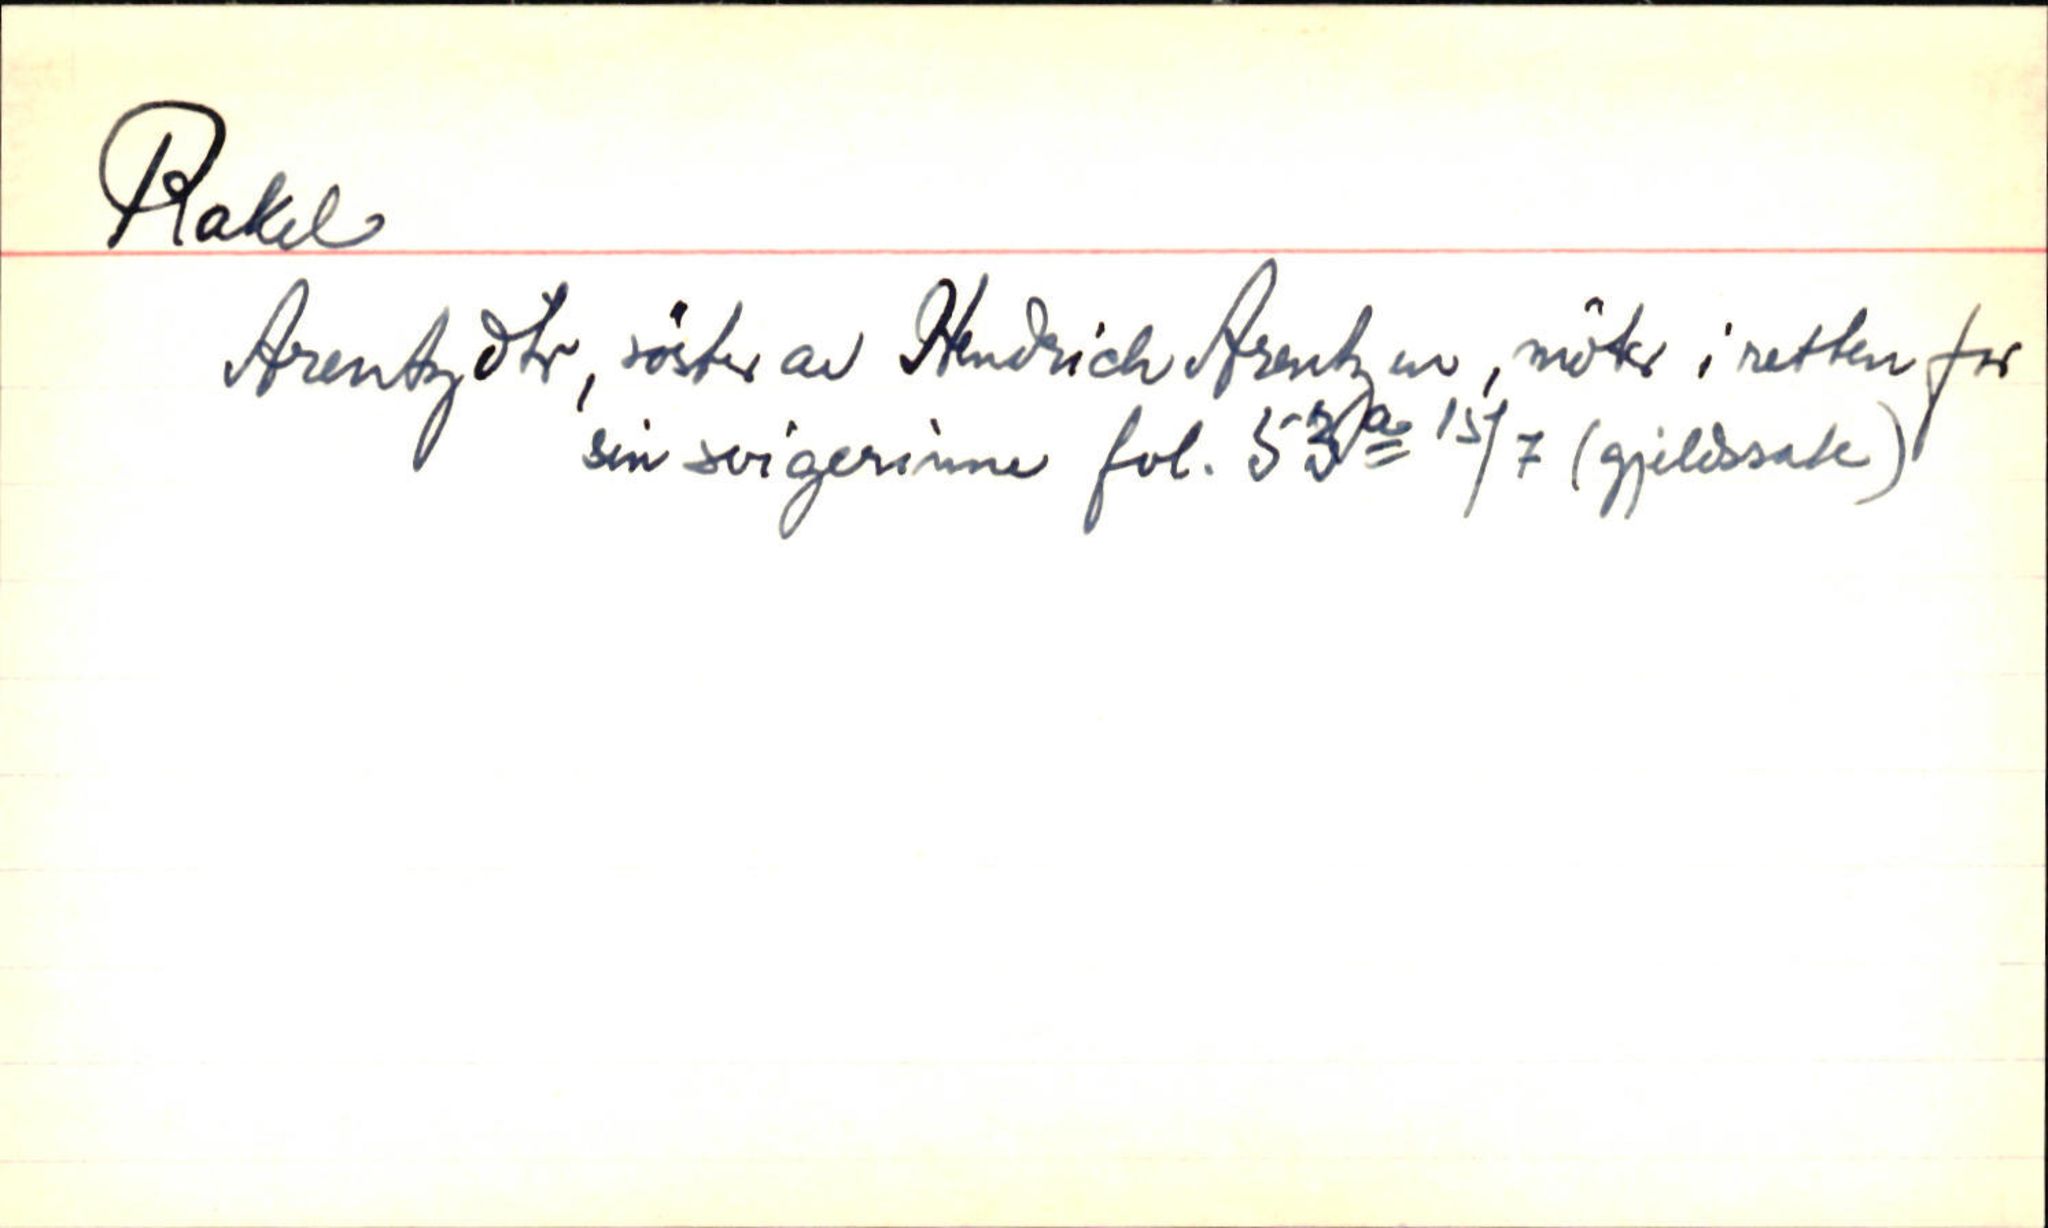 Rakel
Arentzdtr, söster av Hendrich Arentzen, möter i retten for
sin svigerinne fol. 53a 15/7 (gjeldssak)